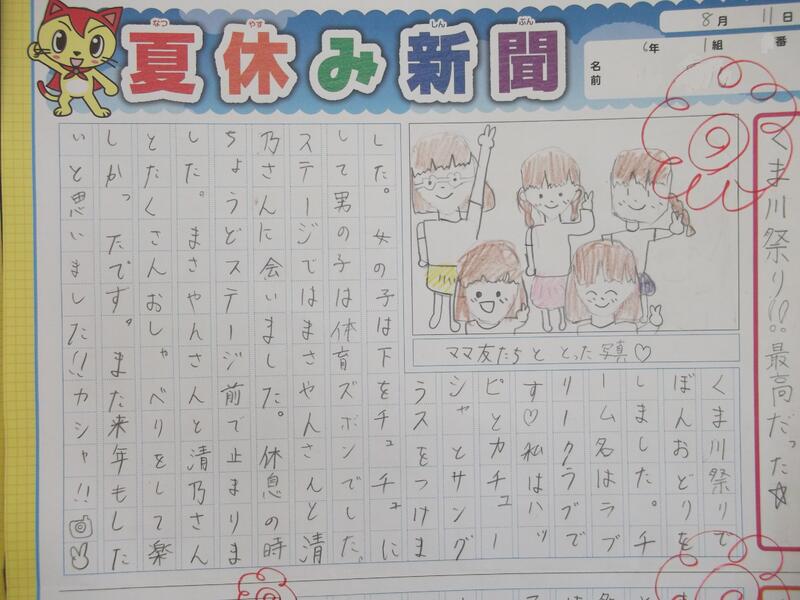 なつ やす しん ぶん
夏休み新聞
8月11日
6年 1組 番
名前
くま川祭り!?最高だった☆
ママ友たちと とった写真♡
くま川祭りで
ぼんおどりを
しました。チ
ーム名はラブ
リークラブで
す♡私はハッ
ピとカチュー
シャとサング
ラスをつけま
した。女の子は下をチュチュに
して男の子は体育ズボンでした。
ステージではまさやんさんと清
乃さんに会いました。休息の時
ちょうどステージ前で止まりま
した。まさやんさんと清乃さん
とたくさんおしゃべりをして楽
しかったです。また来年もした
いと思いました!!カシャ!!